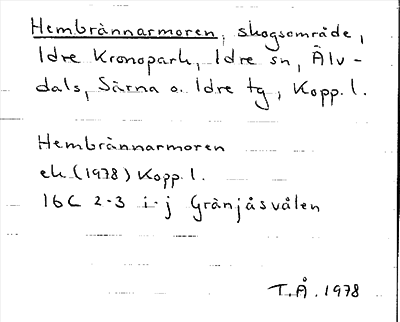 Hembrännarmoren, skogsområde,
Idre Kronopark, Idre sn, Älv-
dals, Särna o. Idre tg, Kopp. l.
Hembrännarmoren
ek (1978) Kopp. l.
16C 2-3 i-j Gränjåsvålen
T.Å. 1978